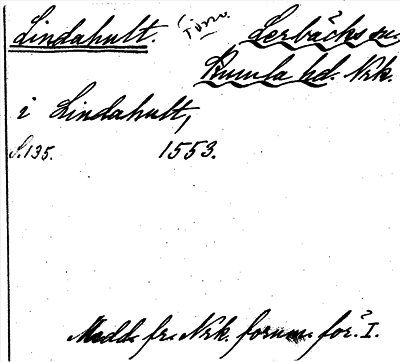 Lindahult. Torp. Lerbäcks sn.
Kumla hd. Nrk.
i Lindahult,
S.135. 1553.
Medd. fr. Nrk. fornm. för. I.